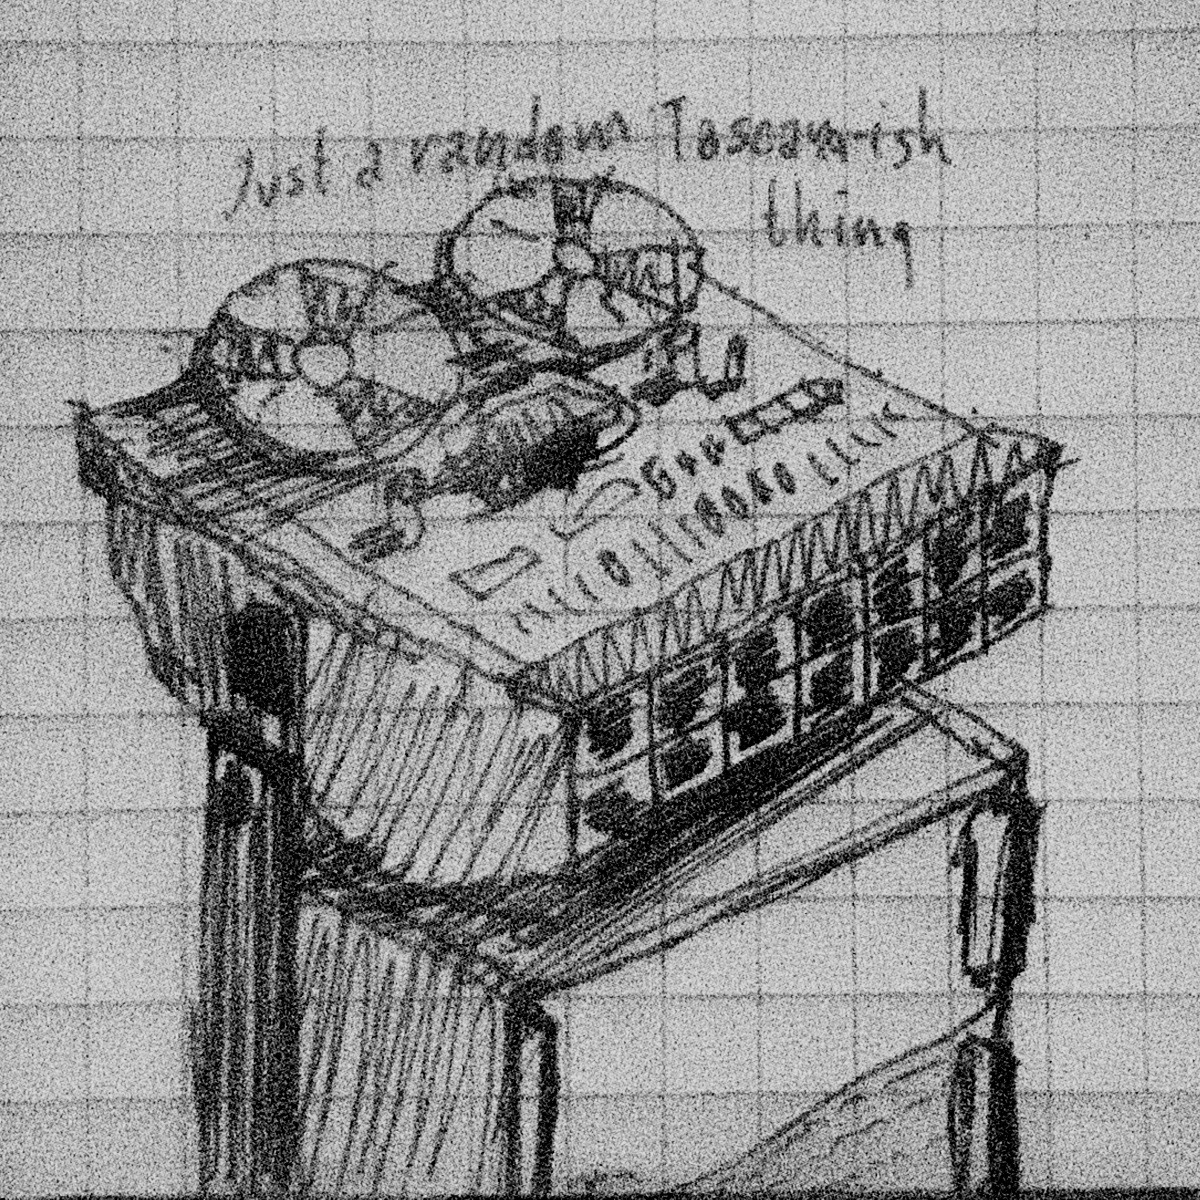 Just a random Tascam-ish
thing